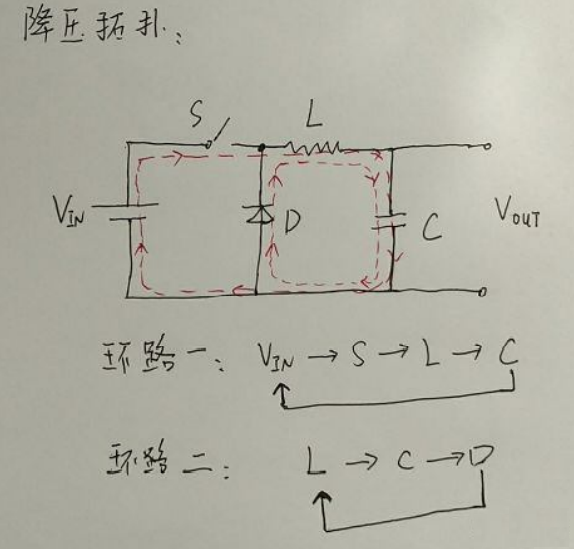 降压拓扑:
S L
V_IN D C V_OUT
环路一: V_IN → S → L → C
环路二: L → C → D